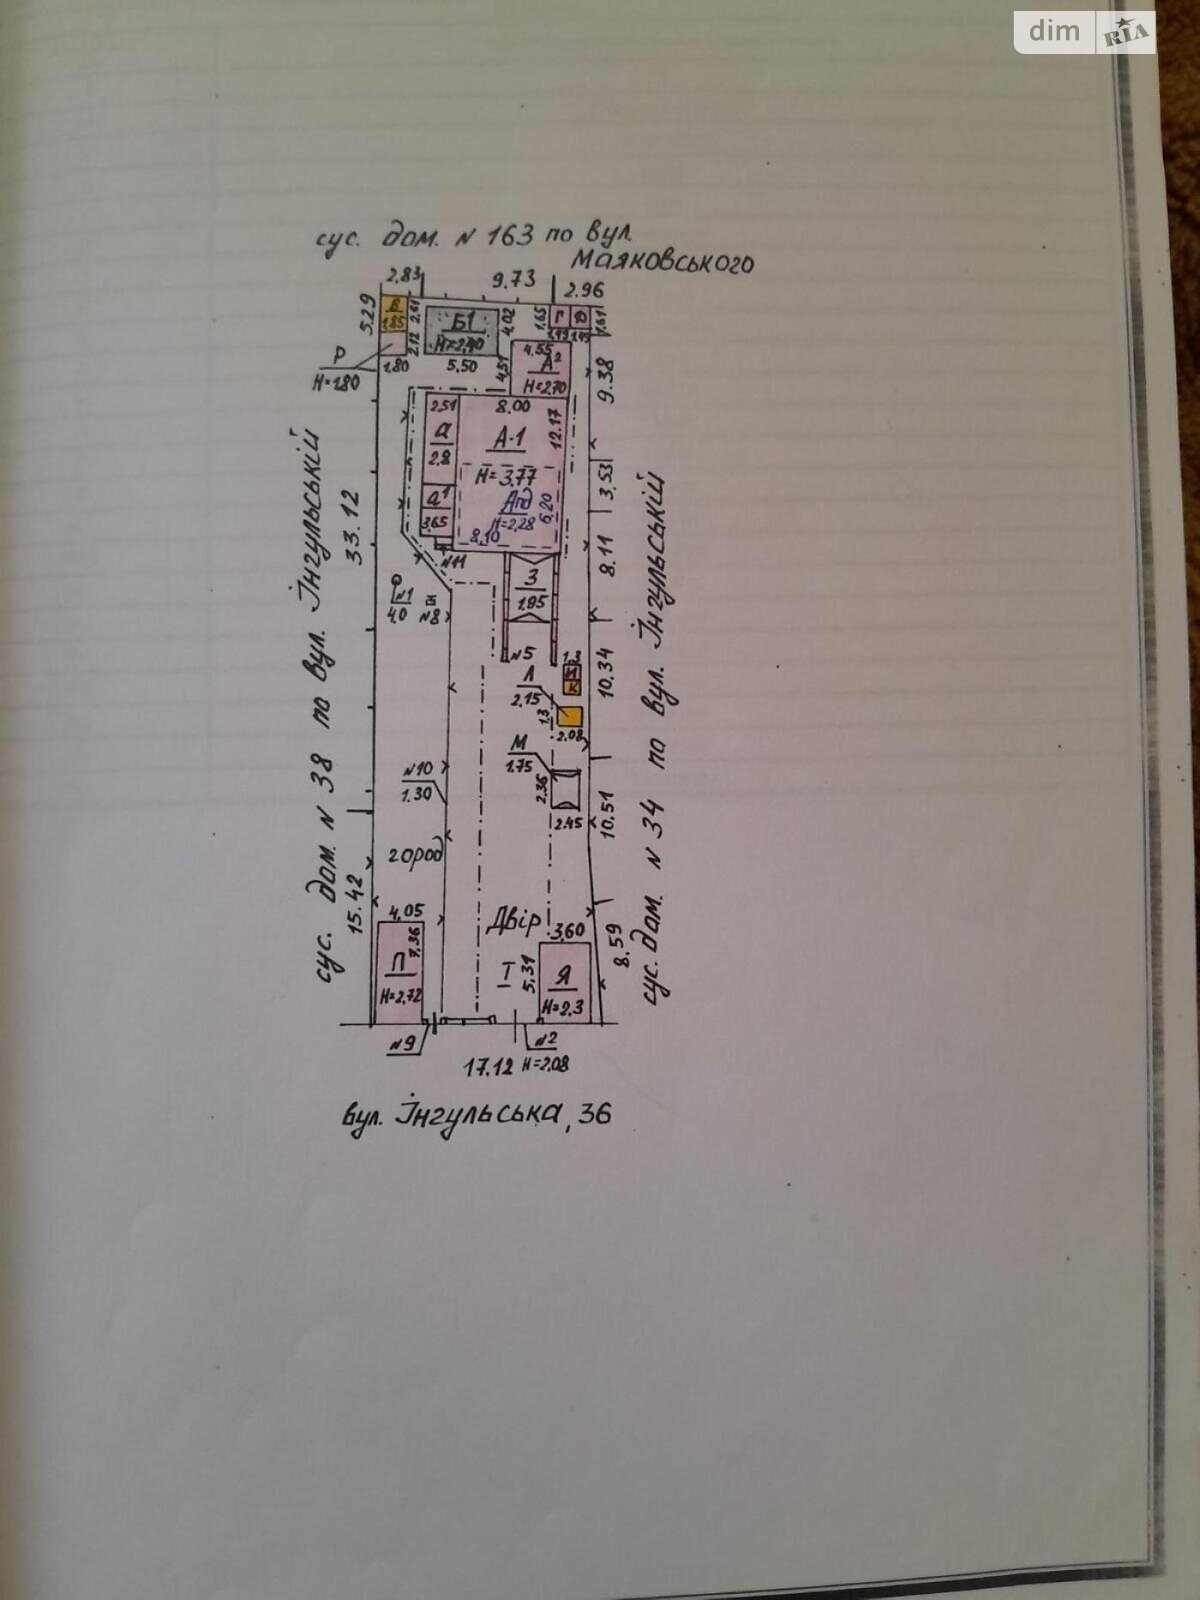 dim RIA
сус. дом. N 163 по вул.
Маяковського
2,83
9.73
2.96
5.29
В
1.85
2,61
2,12
Б1
H=2,40
4,02
1,65
Г
Д
1,61
Р
H=1.80
1,80
5.50
4,51
4,55
А²
H=2,70
9.38
2,51
8.00
12.17
а
2.8
А-1
H=3,77
3,53
а¹
3,65
Апд
H=2,28
6,20
8,10
N11
33.12
8.11
З
1.95
N1
4,0
N8
сус. дом. N 38 по вул. Інгульській
сус. дом. N 34 по вул. Інгульській
N5
1,3
И
К
10.34
Л
2.15
1,3
2.08
М
1.75
2.36
2.45
N10
1.30
10.51
город
15.42
4,05
7,36
П
H=2,72
Двір
3,60
Т
5.31
Я
H=2,3
8.59
N9
N2
17.12 H=2,08
вул. Інгульська, 36